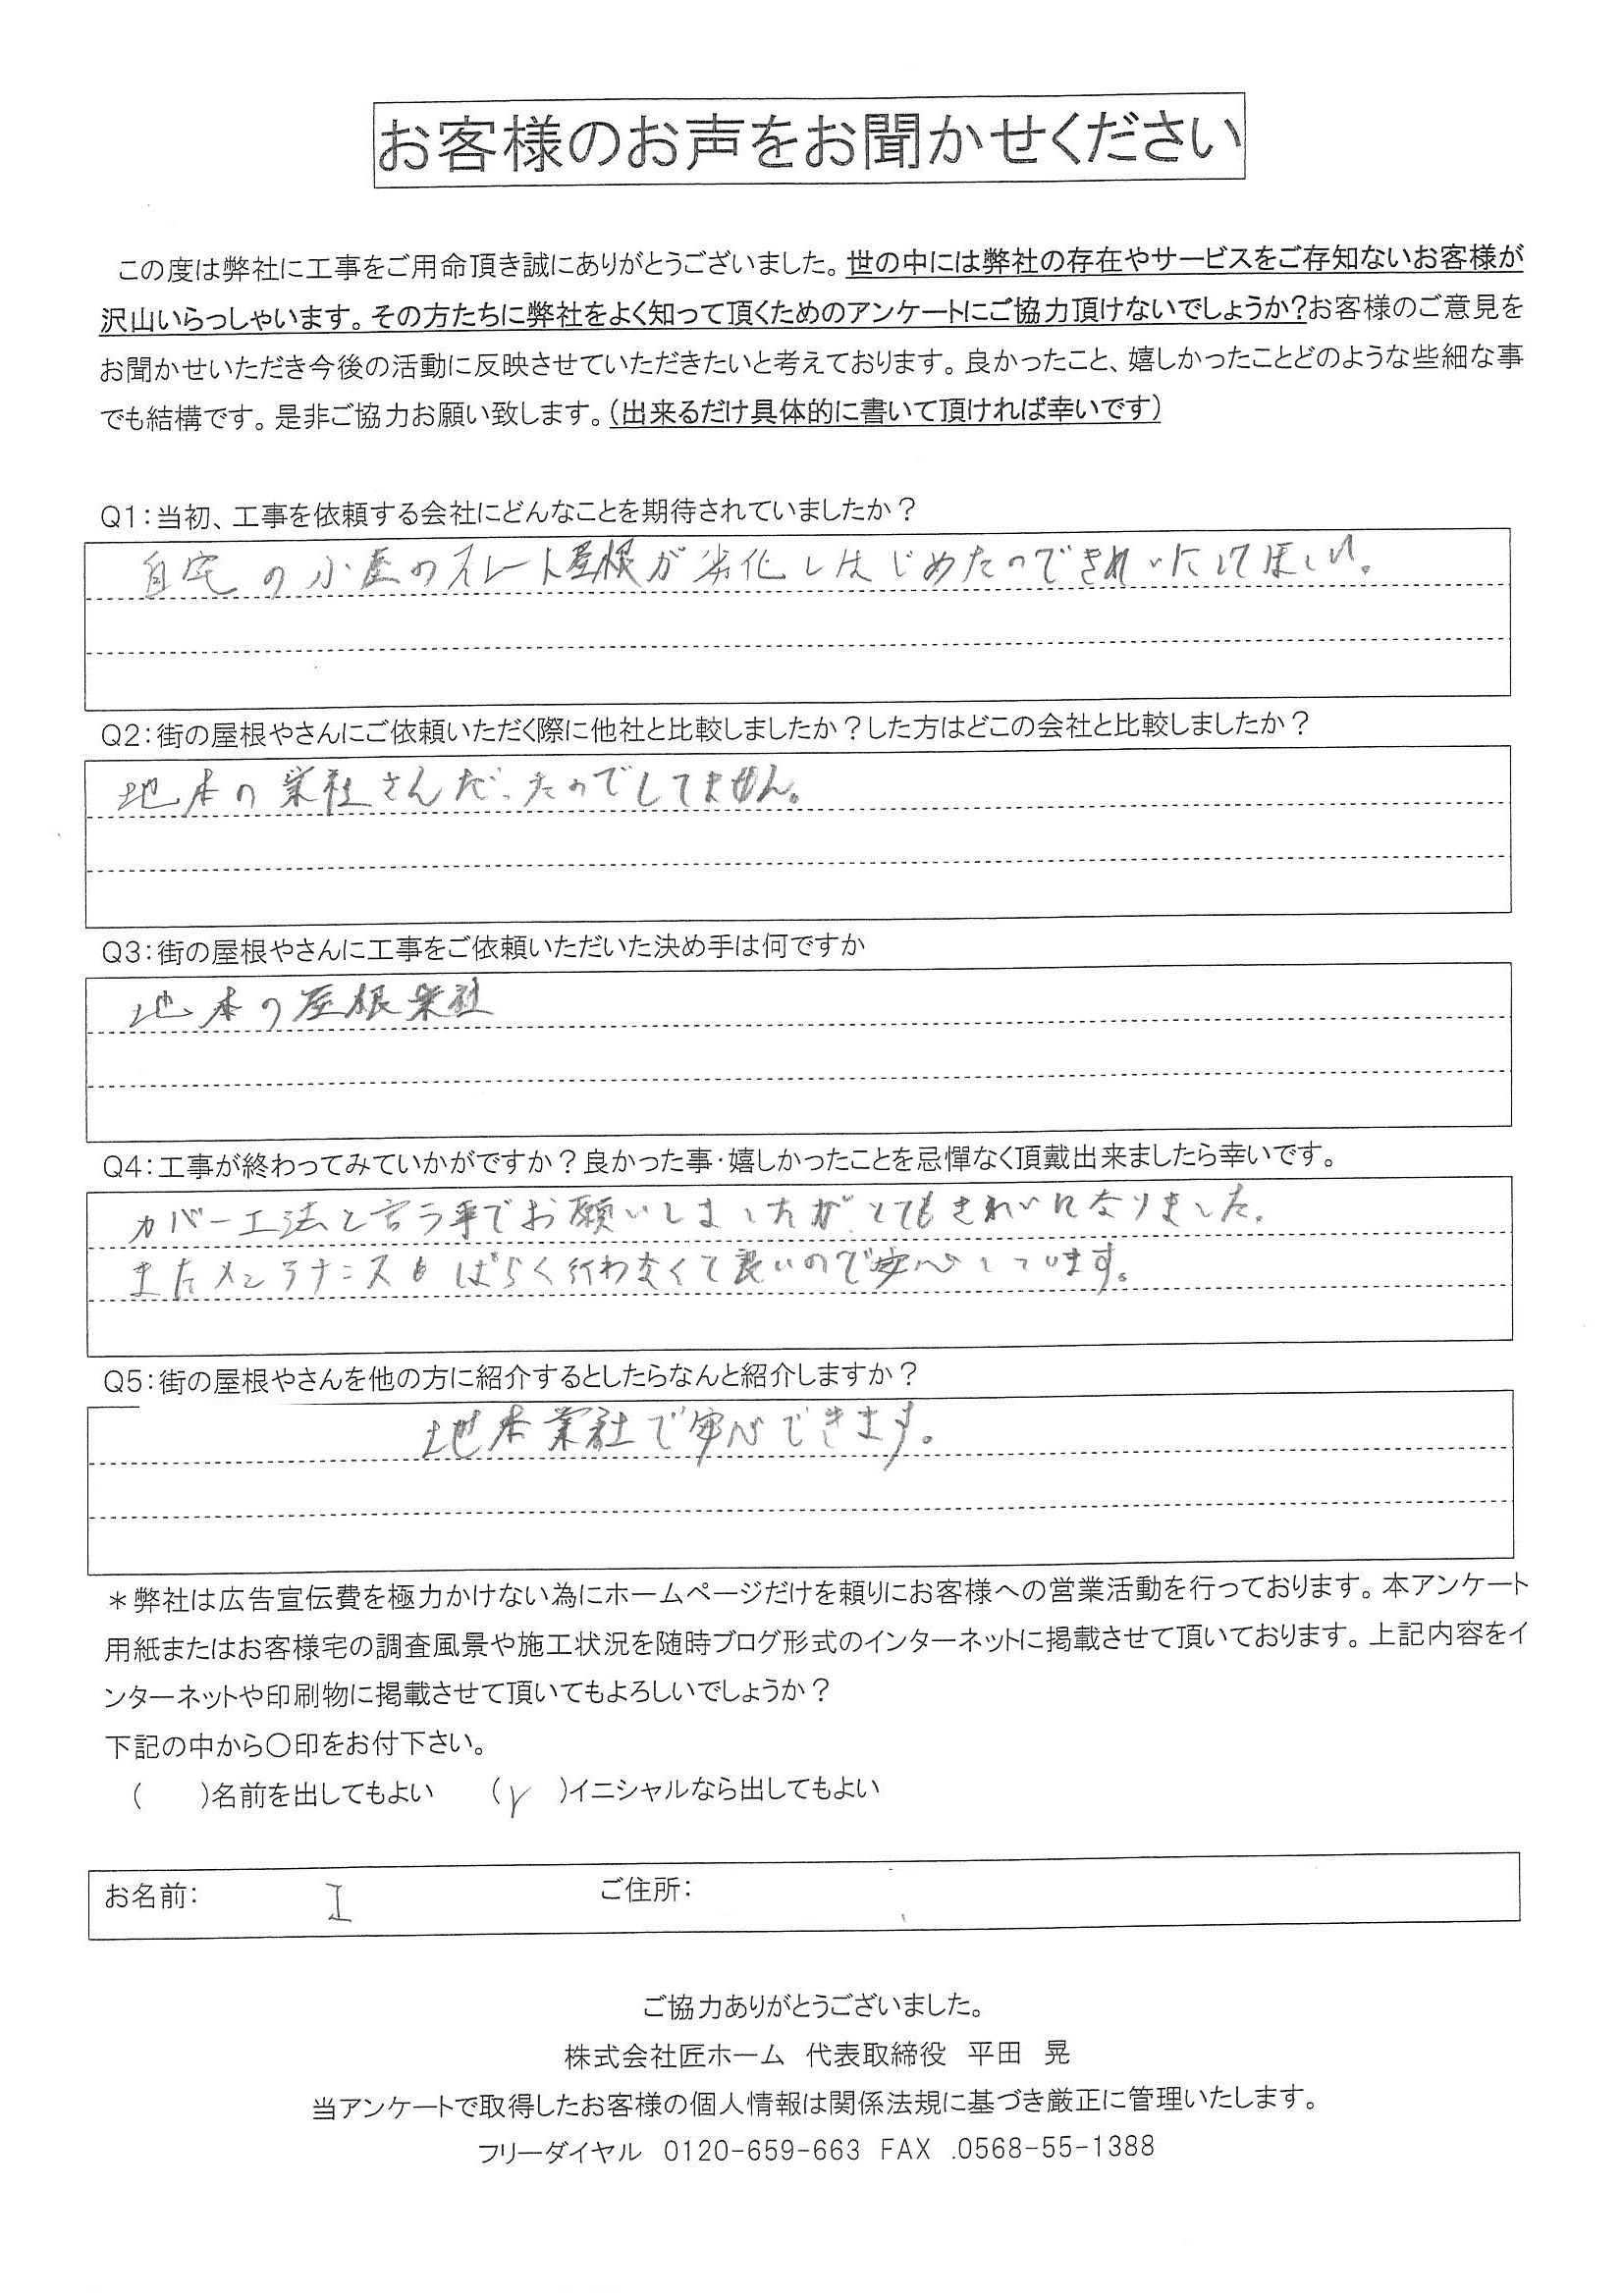 お客様のお声をお聞かせください
この度は弊社に工事をご用命頂き誠にありがとうございました。世の中には弊社の存在やサービスをご存知ないお客様が
沢山いらっしゃいます。その方たちに弊社をよく知って頂くためのアンケートにご協力頂けないでしょうか?お客様のご意見を
お聞かせいただき今後の活動に反映させていただきたいと考えております。良かったこと、嬉しかったことどのような些細な事
でも結構です。是非ご協力お願い致します。(出来るだけ具体的に書いて頂ければ幸いです)
Q1:当初、工事を依頼する会社にどんなことを期待されていましたか?
自宅の小屋のスレート屋根が劣化しはじめたのできれいにしてほしい。
Q2:街の屋根やさんにご依頼いただく際に他社と比較しましたか?した方はどこの会社と比較しましたか?
地本の業社さんだったのでしてません。
Q3:街の屋根やさんに工事をご依頼いただいた決め手は何ですか
地本の屋根業社
Q4:工事が終わってみていかがですか?良かった事・嬉しかったことを忌憚なく頂戴出来ましたら幸いです。
カバー工法と言う事でお願いしましたが、とてもきれいになりました。
またメンテナンスもしばらく行わなくて良いので安心しています。
Q5:街の屋根やさんを他の方に紹介するとしたらなんと紹介しますか?
地本業社で安心できます。
*弊社は広告宣伝費を極力かけない為にホームページだけを頼りにお客様への営業活動を行っております。本アンケート
用紙またはお客様宅の調査風景や施工状況を随時ブログ形式のインターネットに掲載させて頂いております。上記内容をイ
ンターネットや印刷物に掲載させて頂いてもよろしいでしょうか?
下記の中から〇印をお付下さい。
(　)名前を出してもよい　(✓)イニシャルなら出してもよい
お名前: I　ご住所:
ご協力ありがとうございました。
株式会社匠ホーム　代表取締役　平田　晃
当アンケートで取得したお客様の個人情報は関係法規に基づき厳正に管理いたします。
フリーダイヤル 0120-659-663 FAX .0568-55-1388